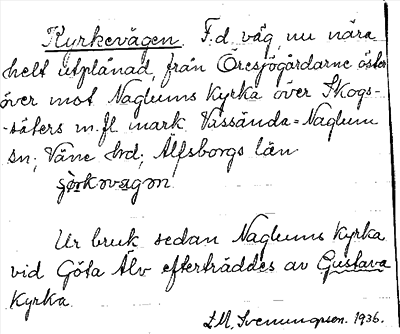 Kyrkevägen. F.d. väg, nu nära
helt utplånad, från Öresjögårdarne öster
över mot Naglums Kyrka över Skogs-
-säters m.fl mark Vassända=Naglum
sn; Väne hrd; Älfsborgs län
Ur bruk sedan Naglums Kyrka
vid Göta Älv efterträddes av Gustava
Kyrka.
1936.